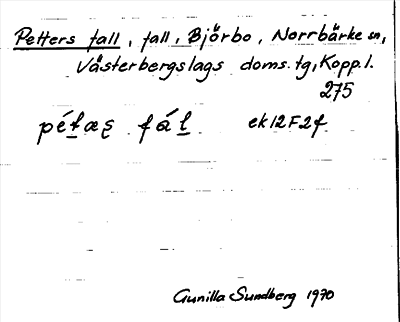 Petters fall, fall, Björbo, Norrbärke sn,
Västerbergslags doms. tg, Kopp. l.
275
pétæs fáł ek12F2f
Gunilla Sundberg 1970